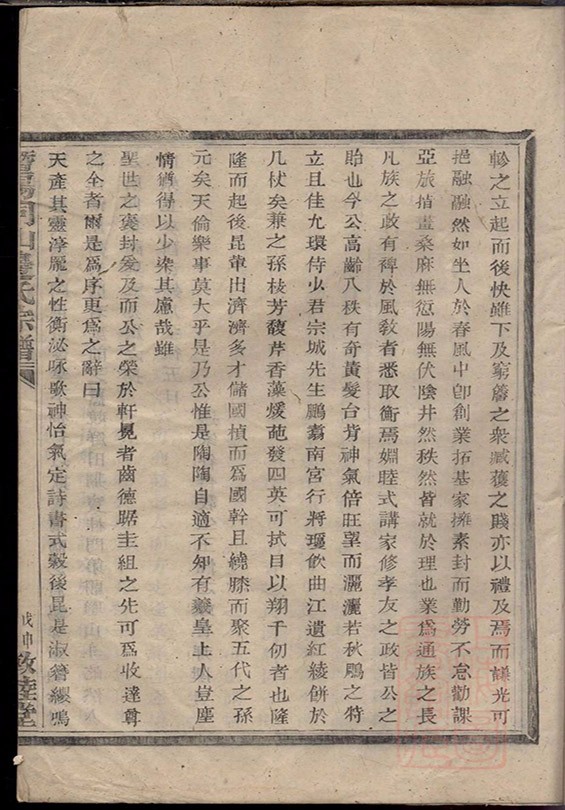 軫之立起而後快雖下及窮簷之衆臧獲之賤亦以禮及焉而謙光可
挹融融然如坐人於春風中卽創業拓基家擁素封而勤勞不怠勸課
亞旅指畫桑麻無愆陽無伏陰井然秩然皆就於理也業爲通族之長
凡族之政有裨於風敎者悉取衡焉婣睦式講家修孝友之政皆公之
貽也今公高齡八秩有奇黃髮台背神氣倍旺望而灑灑若秋鵰之特
立且佳允環侍少君宗城先生鵬翥南宮行將瓊飲曲江遺紅綾餅於
几杖矣兼之孫枝芳馥芹香藻煖葩發四英可拭目以翔千仞者也隆
隆而起後昆輩出濟濟多才儲國楨而爲國幹且繞膝而聚五代之孫
元矣天倫樂事莫大乎是乃公惟是陶陶自適不知有羲皇上人豈塵
情猶得以少染其慮哉雖
聖世之褒封爰及而公之榮於軒冕者齒德踞圭組之先可爲收達尊
之全者爾是爲序更爲之辭曰
天產其靈淳龐之性衡泌咏歌神怡氣定詩書式穀後昆是淑簪纓鳴
暨陽同山邊氏宗譜
戊申 敦睦堂